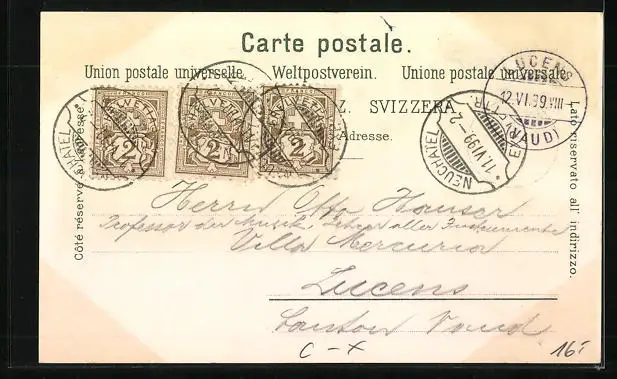 Carte postale.
Union postale universelle. Weltpostverein. Unione postale universale
Z. SVIZZERA
Adresse.
Côté réservé à l'adresse.
Lato riservato all' indirizzo.
HELVETIA
2
HELVETIA
2
HELVETIA
2
NEUCHATEL
11.VI.99.–2
LUCENS
12.VI.99.VIII
(VAUD)
Herrn Otto Hauser
Professor der Musik, Lehrer aller Instrumente
Villa Mercuria
Lucens
Canton Vaud
C – x
16.